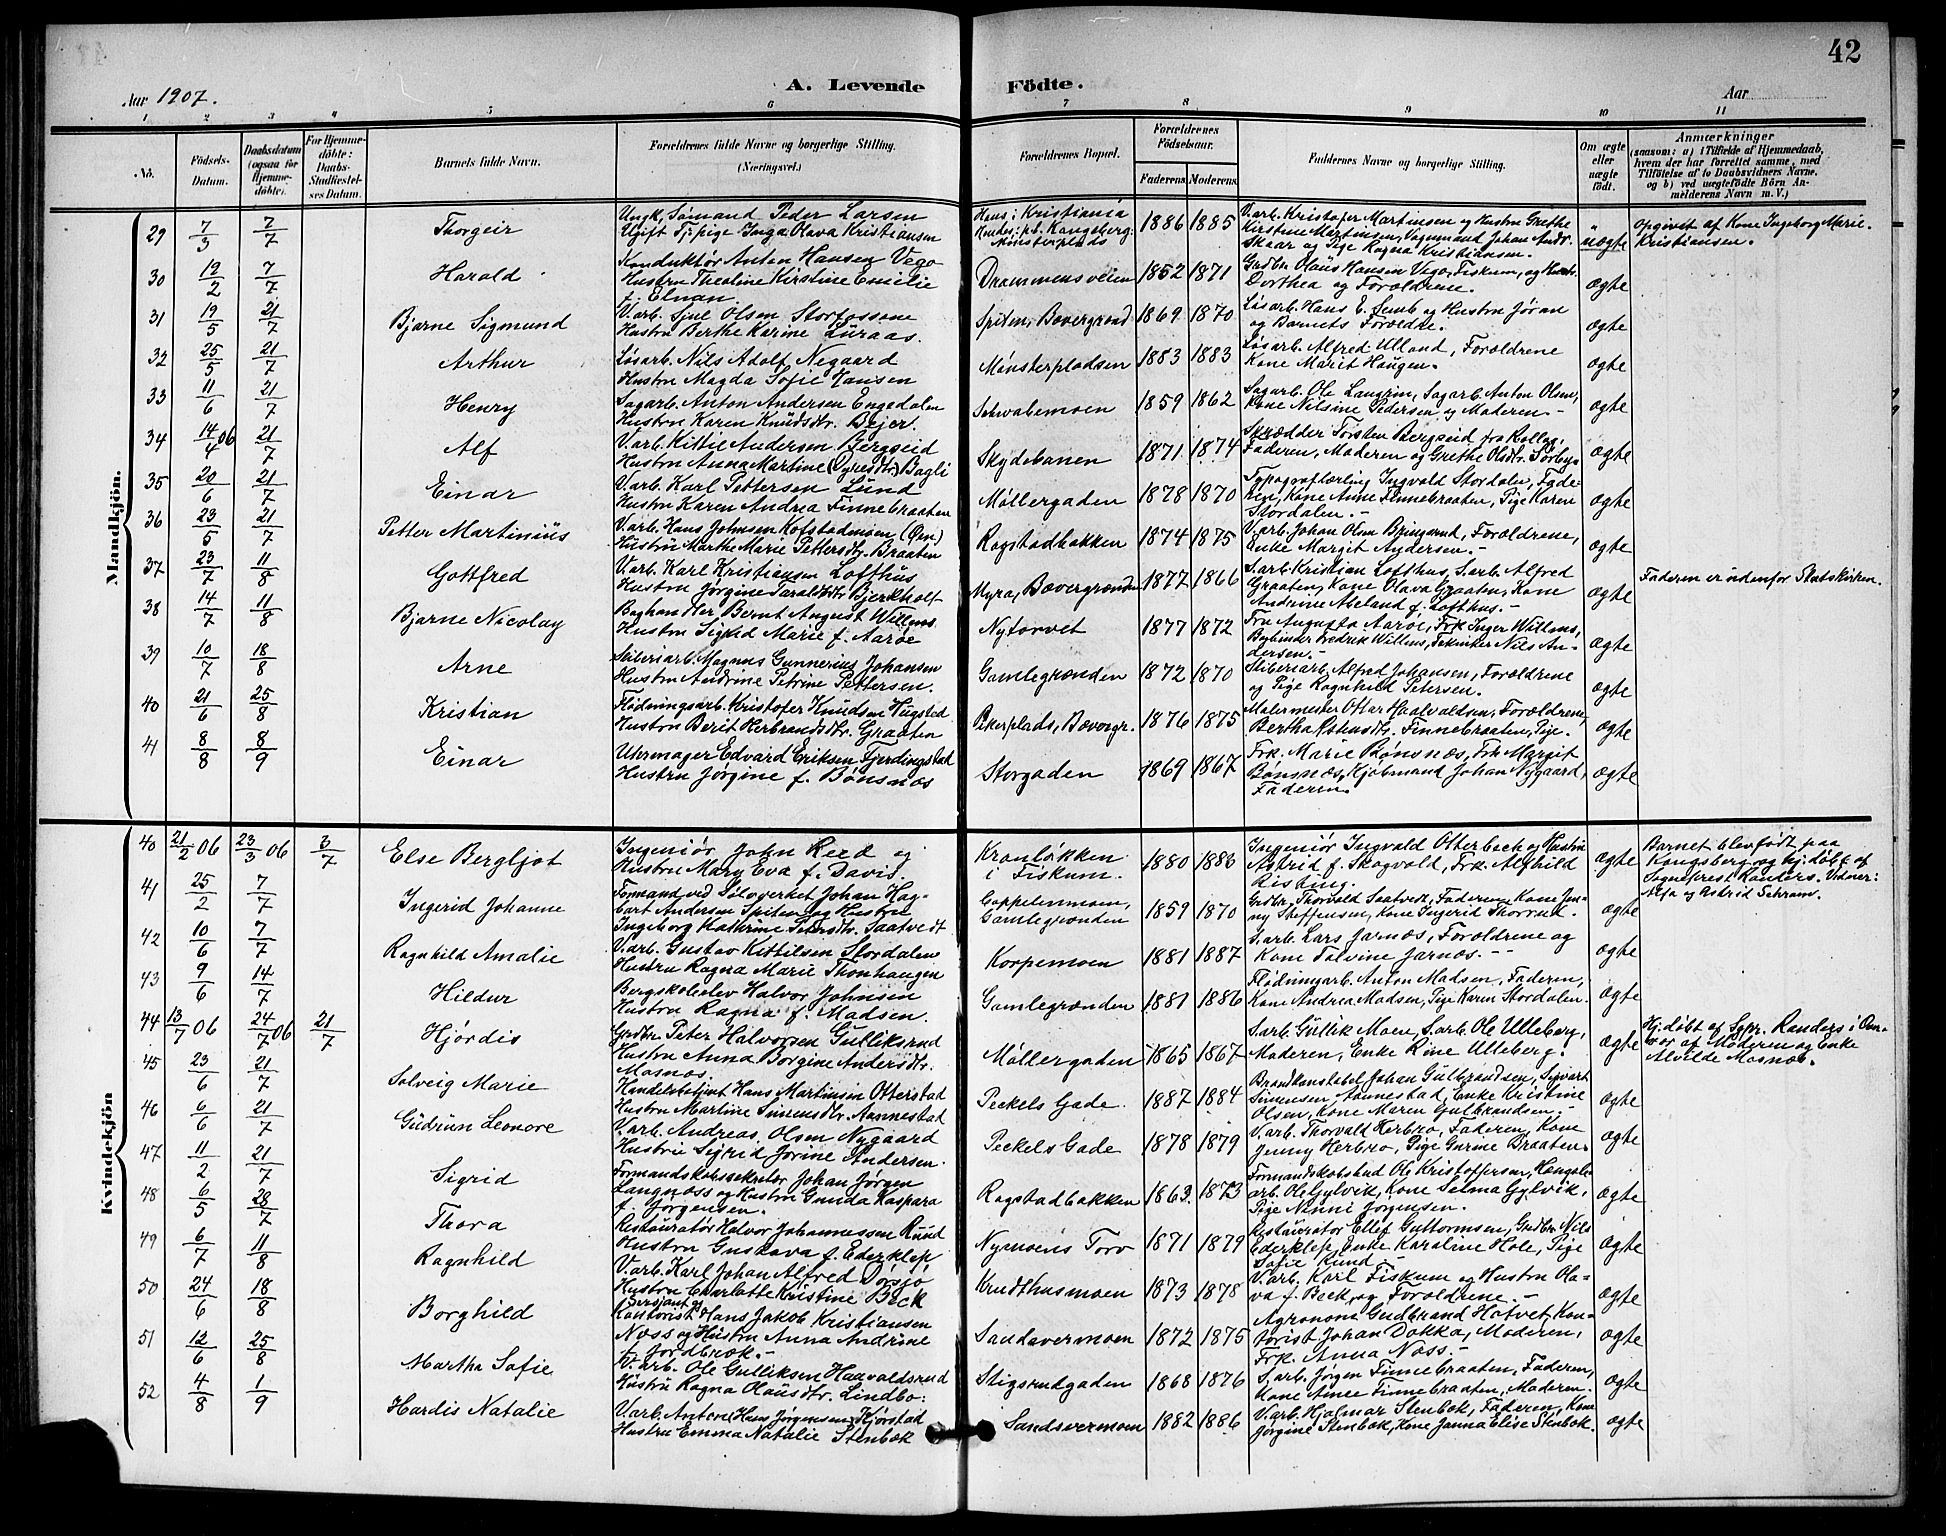 42
Aar 1907.
A. Levende Födte.
Aar
1 2 3 4 5 6 7 8 9 10 11
No.
Födsels-Datum.
Daabsdatum (ogsaa for Hjemme-döbte).
For Hjemme-döbte: Daabs-Stadfæstel-ses Datum.
Barnets fulde Navn.
Forældrenes fulde Navne og borgerlige Stilling. (Næringsvei.)
Forældrenes Bopæl.
Forældrenes Födselsaar.
Faderens. Moderens.
Faddernes Navne og borgerlige Stilling.
Om ægte eller uægte födt.
Anmærkninger
(saasom: a) i Tilfælde af Hjemmedaab, hvem der har forrettet samme, med Tilföielse af to Daabsvidners Navne, og b) ved uægtefödte Börn An-melderens Navn m.V.)
Mandkjön.
29 7/3 7/7 Thorgeir
Ungk. Sømand Peder Larsen
Ugift Tj.pige Inga Olava Kristiansen
Hans: Kristiania
Hendes: p.t. Kongsberg: Mønsterplads
1886 1885
V.arb. Kristofer Martinsen og Hustru Grethe
Kirstine Martinsen, Vognmand Johan Andr.
Skaar og Pige Ragna Kristiansen.
uægte
Opgivet af Kone Ingeborg Marie Kristiansen.
30 12/2 7/7 Harald
Konduktør Anton Hansen Vego
Hustru Thealine Kirstine Emilie
f. Elnan.
Drammensveien 1852 1871
Grdbr. Olaus Hansen Vego, Fiskum, og Hustr.
Dorthea og Forældrene.
ægte
31 19/5 21/7 Bjarne Sigmund
V.arb. Sjul Olsen Storfossene
Hustru Berthe Karine Luraas.
Spiten, Bævergrænd 1869 1870
Løsarb. Hans E. Semb og Hustru Jøran
og Barnets Forældre.
ægte
32 25/5 21/7 Arthur
Løsarb. Nils Adolf Negaard
Hustru Magda Sofie Hansen
Mønsterpladsen 1883 1883
Løsarb. Alfred Ulland, Forældrene
Kone Marit Haugen.
ægte
33 11/6 21/7 Henry
Sagarb. Anton Andersen Engedalen
Hustru Karen Knudsdtr. Bejer.
Schwabemoen 1859 1862
Sagarb. Ole Langrin, Sagarb. Anton Olsen,
Kone Nilsine Pedersen og Moderen.
ægte
34 14/4 06 21/7 Alf
V.arb. Kittil Andersen Bergseid
Hustru Anna Martine (Syvesdtr.) Bagli
Skydebanen 1871 1874
Skrædder Torsten Bergseid fra Rollag,
Faderen, Moderen og Grethe Olsdtr. Sørby
ægte
35 20/6 21/7 Einar
V.arb. Karl Pettersen Lund
Hustru Karen Andrea Finnebraaten
Møllergaden 1878 1870
Typograflærling Ingvald Stordalen, Fade-
ren, Kone Anne Finnebraaten, Pige Karen
Stordalen.
ægte
36 23/5 21/7 Petter Martinius
V.arb. Hans Johnsen Kofstadmoen (Øen)
Hustru Marthe Marie Pettersdtr. Braaten
Ragstadbakken 1874 1875
V.arb. Johan Olsen Bringsrud, Forældrene,
Enke Margit Andersen.
ægte
37 23/7 11/8 Gottfred
V.arb. Karl Kristiansen Lofthus
Hustru Jørgine Taraldsdtr. Bjerkholt
Myra, Bævergrænden 1877 1866
S.arb. Kristian Lofthus, S.arb. Alfred
Graaten, Kone Olava Graaten, Kone
Andrine Aseland f. Lofthus.
ægte
Faderen er udenfor Statskirken.
38 14/7 11/8 Bjarne Nicolay
Boghandler Bernt August Willens.
Hustru Sigrid Marie f. Aarøe
Nytorvet 1877 1872
Fru Augusta Aarøe, Frk. Inger Willens,
Bogbinder Fredrik Willens, Tekniker Nils An-
dersen.
ægte
39 10/7 18/8 Arne
Sliberiarb. Magnus Gunnerius Johansen
Hustru Andrine Petrine Pettersen.
Gamlegrænden 1872 1870
Sliberiarb. Alfred Johansen, Forældrene
og Pige Ragnhild Petersen.
ægte
40 21/6 25/8 Kristian
Flødningsarb. Kristofer Knudsen Hugsted
Hustru Berit Herbrandsdtr. Graaten
Pikerplads, Bævergr. 1876 1875
Malermester Ottar Haalvaldsen, Forældrene,
Bertha Finnebraaten, Pige.
ægte
41 8/8 8/9 Einar
Uhrmager Edvard Eriksen Fjerdingstad
Hustru Jørgine f. Bønsnæs
Storgaden 1869 1867
Frk. Marie Bønsnæs, Frk. Margit
Bønsnæs, Kjøbmand Johan Nygaard,
Faderen.
ægte
Kvindekjön
40 21/2 06 23/3 06 3/7 Else Bergljot
Ingeniør John Reed og
Hustru Mary Eva f. Davis.
Kronløkken i Fiskum. 1880 1886
Ingeniør Ingvald Otterbech og Hustru
Astrid f. Skogvold, Frk. Alfhild
Risting.
ægte
Barnet blev født paa
Kongsberg og hj.døbt af
Sogneprest Randers. Vidner:
Alfa og Astrid Schram.
41 25/2 7/7 Ingerid Johanne
Formand ved Sølvverket Johan Hag-
bart Andersen Spiten og Hustru
Ingeborg Kathrine Petersdtr. Saatvedt
Coppelenmoen, Gamlegrænden 1859 1870
Grdbr. Thorvald Saatvedt, Faderen, Kone Jen-
ny Steffensen, Kone Ingerid Thorrud.
ægte
42 10/6 7/7 Ragnhild Amalie
V.arb. Gustav Kittilsen Stordalen
Hustru Ragna Marie Thonhaugen
Korpemoen 1881 1887
S.arb. Lars Jarnæs, Forældrene og
Kone Tolvine Jarnæs.
ægte
43 9/6 14/7 Hildur
Bergskoleelev Halvor Johnsen
Hustru Ragna f. Madsen.
Gamlegrænden 1881 1886
Flødningarb. Anton Madsen, Faderen,
Kone Andrea Madsen, Pige Karen Stordalen.
ægte
44 13/7 06 24/7 06 21/7 Hjørdis
Grdbr. Peter Halvorsen Gulliksrud
Hustru Anna Borgine Andersdtr.
Mosnæs.
Møllergaden 1865 1867
S.arb. Gullik Moen, S.arb. Ole Ulleberg,
Moderen, Enke Rine Ulleberg.
ægte
Hj.døbt af Sgpr. Randers i Over-
vær af Moderen og Enke
Alvilde Mosnæs.
45 23/6 21/7 Solveig Marie
Handelsbetjent Hans Martinsen Otterstad
Hustru Martine Simensdtr. Aannestad
Peckels Gade. 1887 1884
Brandkonstabel Johan Gulbrandsen, Sigvart
Simensen Aannestad, Enke Kristine
Olsen, Kone Maren Gulbrandsen.
ægte
46 6/6 21/7 Gudrun Leonore
V.arb. Andreas Olsen Nygaard
Hustru Sigrid Jorine Andersen.
Peckels Gade 1878 1879
V.arb. Thorvald Herbro, Faderen, Kone
Jenny Herbro, Pige Gurine Braaten.
ægte
47 11/2 21/7 Sigrid
Formandskabssekretær Johan Jørgen
Langnæss og Hustru Gunda Kaspara
f. Jørgensen.
Ragstadbakken 1863. 1873
Formandskabsbud Ole Kristoffersen, Kongsb.
arb. Ole Gylvik, Kone Selma Gylvik,
Pige Ninni Jørgensen.
ægte
48 6/5 28/7 Thora
Restauratør Halvor Johannessen Rund
Hustru Gustava f. Ederklep
Nymoens Torv 1871 1879
Restauratør Ellef Guttormsen, Grdbr. Nils
Ederklep, Enke Karoline Hole, Pige
Sofie Rund
ægte
49 6/7 11/8 Ragnhild
V.arb. Karl Johan Alfred Dorsjø
Hustru Charlotte Kristine Beck
Krudthusmoen 1873 1878
V.arb. Karl Fiskum og Hustru Ola-
va f. Beck og Forældrene.
ægte
50 24/6 18/8 Borghild
Sersjant og Kontorist Hans Jakob Kristiansen
Næss og Hustru Anna Andrine
f. Jordbræk.
Sandsværmoen 1872 1875
Agronom Gudbrand Hotvet, Kon-
torist Johan Dokka, Moderen,
Frk. Anna Næss.
ægte
51 12/6 25/8 Martha Sofie
V.arb. Ole Gulliksen Haavaldsrud
Hustru Ragna Olausdtr. Lindbo.
Stigsrudgaden 1868 1876
S.arb. Jørgen Finnebraaten, Faderen,
Kone Anne Finnebraaten, Moderen.
ægte
52 4/8 1/9 Hardis Natalie
V.arb. Anton Hans Jørgensen Kjørstad
Hustru Emma Natalie Stenbæk
Sandsværmoen 1882 1886
V.arb. Hjalmar Stenbæk, Faderen, Kone
Jørgine Stenbæk, Kone Janna Elise Stenbæk.
ægte